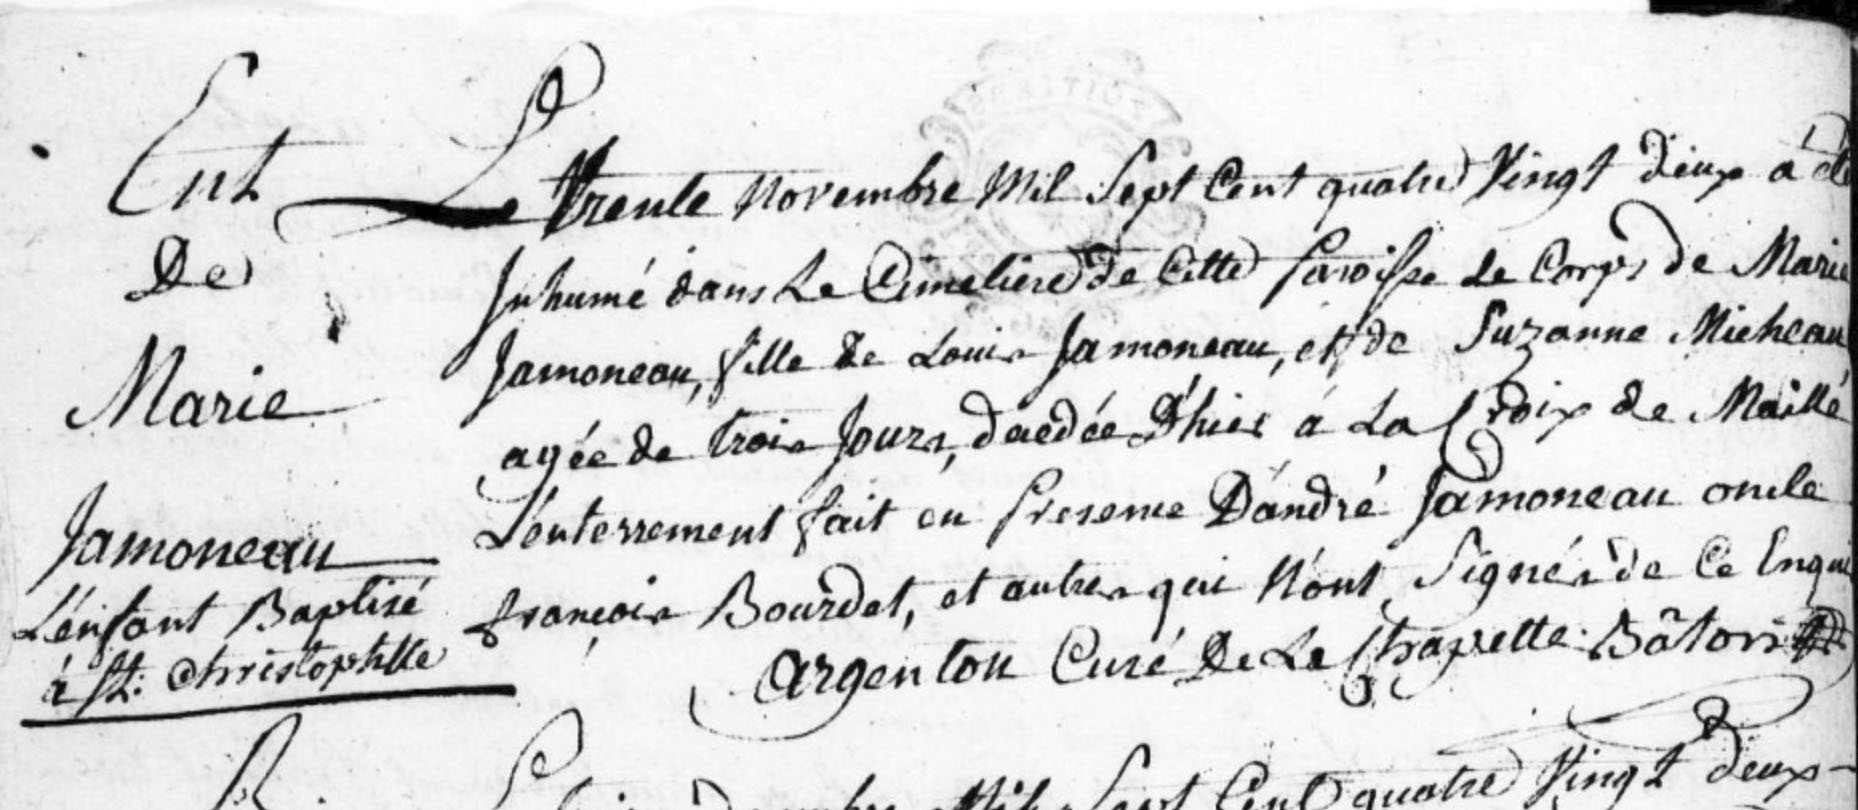 Ent
De
Marie
Jamoneau
L'énfant Baptisé
à St: Christophlle
Le Trente Novembre Mil Sept Cent quatre Vingt deux a été
Inhumé dans Le Cimetiere de Cette Paroisse Le Corps de Marie
Jamoneau, fille de Louis Jamoneau, et de Suzanne Micheau
agée de trois Jours, décédée D'hier á La Croix de Maillé
L'enterrement fait en Presence D'andré Jamoneau oncle
françois Bourdet, et autres qui N'ont Signés de Ce Enqui
Argenton Curé De La Chapelle: Bâton
Mil Sept Cent quatre Vingt deux